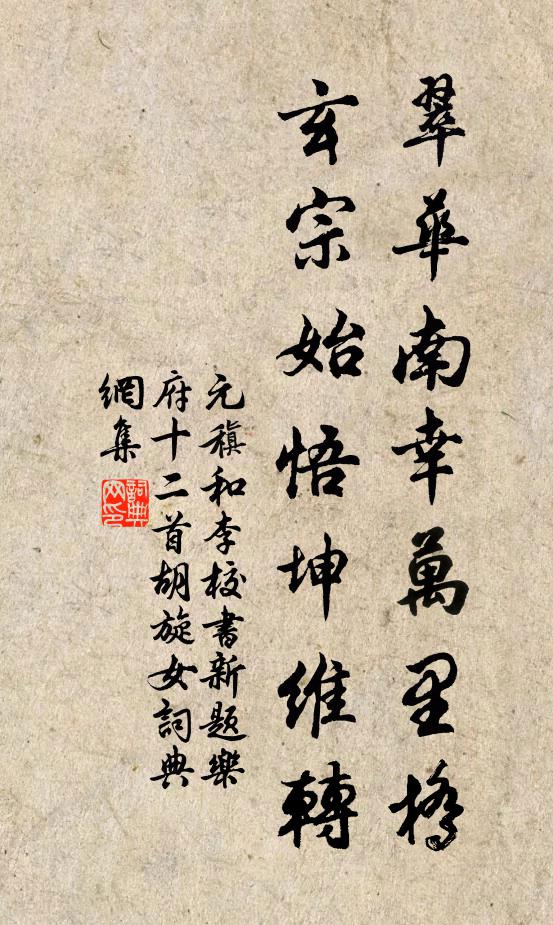 翠華南幸萬里橋
玄宗始悟坤維轉
元稹和李校書新題樂
府十二首胡旋女詞典
網集
詞典網印